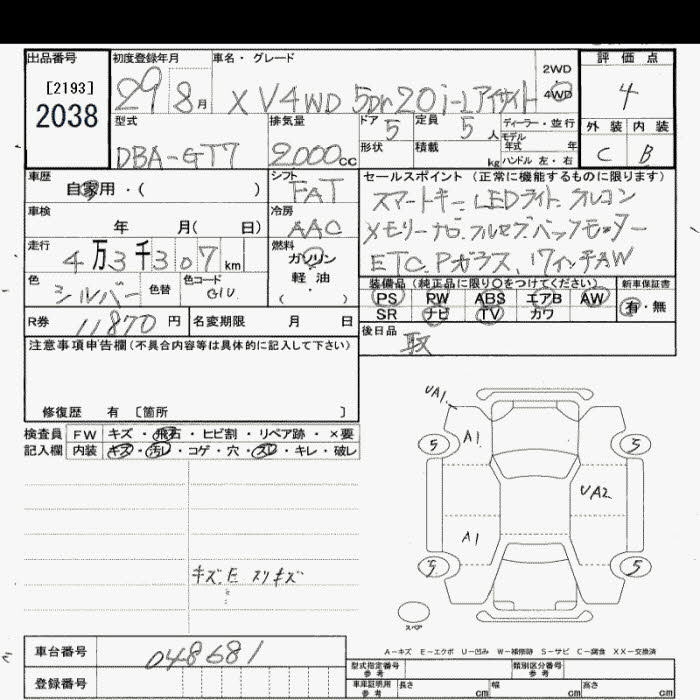 出品番号
[2193]
2038
初度登録年月 車名・グレード
29 8月 XV4WD 5Dr 20i-Lアイサイト 2WD 4WD
評価点
4
外装 内装
C B
型式 排気量 ドア 定員 ディーラー・並行
DBA-GT7 2000cc 5 5人 モデル年式 年
形状 積載 kg ハンドル 左・右
車歴 シフト
自家用・( ) FAT
車検 冷房
年 月( 日) AAC
走行 燃料
4万3千307km ガソリン
軽・油
( )
色 色替 色コード
シルバー G1U
R券 11870円 名変期限 月 日
セールスポイント(正常に機能するものに限ります)
スマートキー.LEDライト.クルコン
メモリーナビ.フルセグ.バックモニター
ETC.Pガラス.17インチAW
装備品(純正品に限り○をつけてください) 新車保証書
PS PW ABS エアB AW 有・無
SR ナビ TV カワ
後日品
取
注意事項申告欄(不具合内容等は具体的に記入して下さい)
修復歴 有 〔箇所 〕
検査員 FW キズ・飛石・ヒビ割・リペア跡・×要
記入欄 内装 キズ・汚レ・コゲ・穴・スレ・キレ・破レ
キズ.E スリキズ
UA1.
A1
5 5
UA2
A1
5 5
スペア
A-キズ E-エクボ U-凹み W-補修跡 S-サビ C-腐食 XX-交換済
車台番号 048681
登録番号
型式指定番号 参考 類別区分番号 参考
車庫証明用 参考 長さ cm 幅 cm 高さ cm